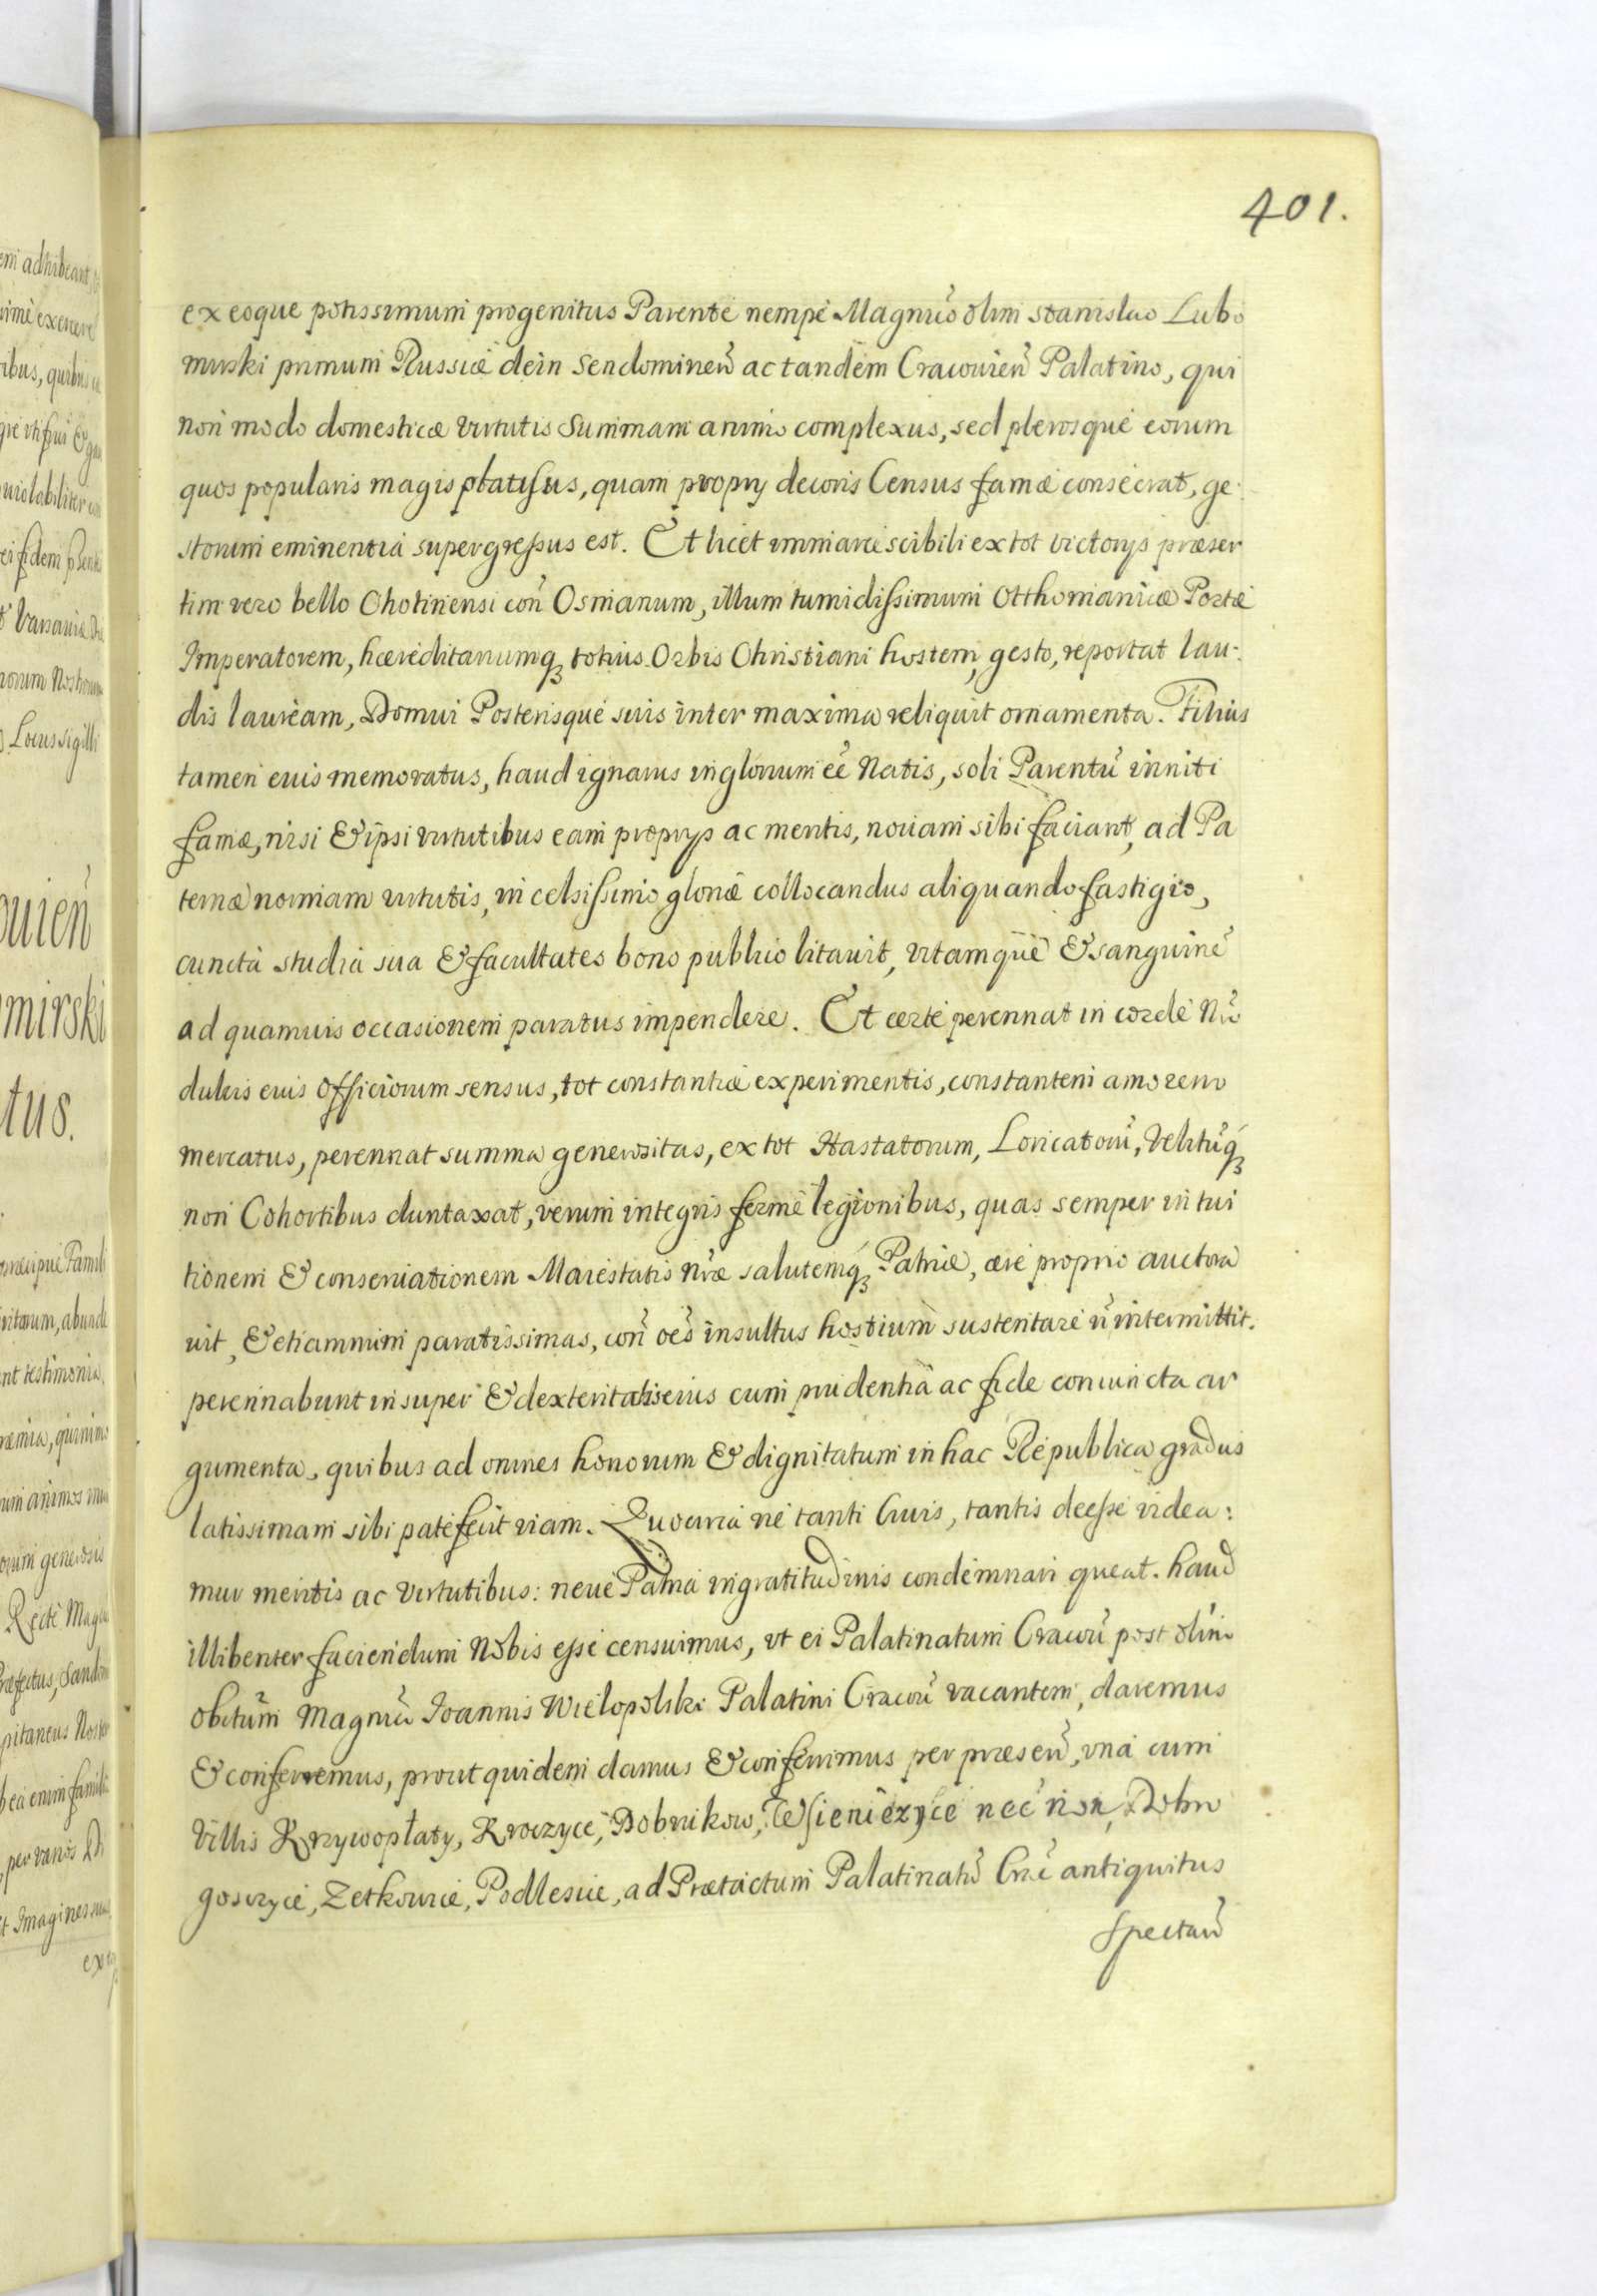 401.
ex eoque potissimum progenitus Parente nempe Magnuo olim Stanislao Lubo
mirski primum Russiæ dein Sendomiren ac tandem Cracovien Palatino, qui
non modo domesticæ virtutis Summam animo complexus, sed plerosque eorum
quos popularis magis plausus, quam proprij decoris Census famæ consecrat, ge-
storum eminentia supergressus est. Et licet immarcescibili ex tot victorys præser
tim vero bello Chotinensi con Osmanum, illum tumidissimum Otthomanicæ Portæ
Imperatorem, hæreditariumq totius Orbis Christiani hostem, gesto, reportat lau-
dis lauream, Domui Posterisque suis inter maxima reliquit ornamenta. Filius
tamen eius memoratus, haud ignarus inglorium eē Natis, soli Parentū inniti
famæ, nisi & ipsi virtutibus eam proprys ac meritis, novam sibi faciant, ad Pa
ternæ normam virtutis, in celsissimo gloriæ collocandus aliquando fastigio,
cuncta studia sua & facultates bono publico litavit, vitamque & sanguinē
ad quamvis occasionem paratus impendere. Et certe perennat in corde Nrō
dulcis eius officiorum sensus, tot constantiæ experimentis, constantem amorem
mercatus, perennat summa generositas, ex tot Hastatorum, Loricatorū, Velitūq
non Cohortibus duntaxat, verum integris ferme legionibus, quas semper in tui
tionem & conservationem Maiestatis Nræ salutemq Patriæ, ære proprio auctora
vit, & etiamnum paratissimas, con oēs insultus hostium sustentare ñ intermittit.
perennabunt insuper & dexteritatis eius cum prudentia ac fide coniuncta ar
gumenta, quibus ad omnes honorum & dignitatum in hac Republica gradus
latissimam sibi patefecit viam. Quocirca ne tanti Civis, tantis deesse videa:
mur meritis ac virtutibus: neve Patria ingratitudinis condemnari queat. haud
illibenter faciendum Nobis esse censuimus, vt ei Palatinatum Cracoū post olim
obitum Magnici Ioannis Wielopolski Palatini Cracoū vacantem, daremus
& conferremus, prout quidem damus & conferimus per præsen, vna cum
Villis Krzywopłaty, Kroczyce, Dobrikow, Wsieniezyce nec non, Dobro
goszyce, Zetkowice, Podlesice, ad Prætactum Palatinatū Crac antiquitus
Spectan